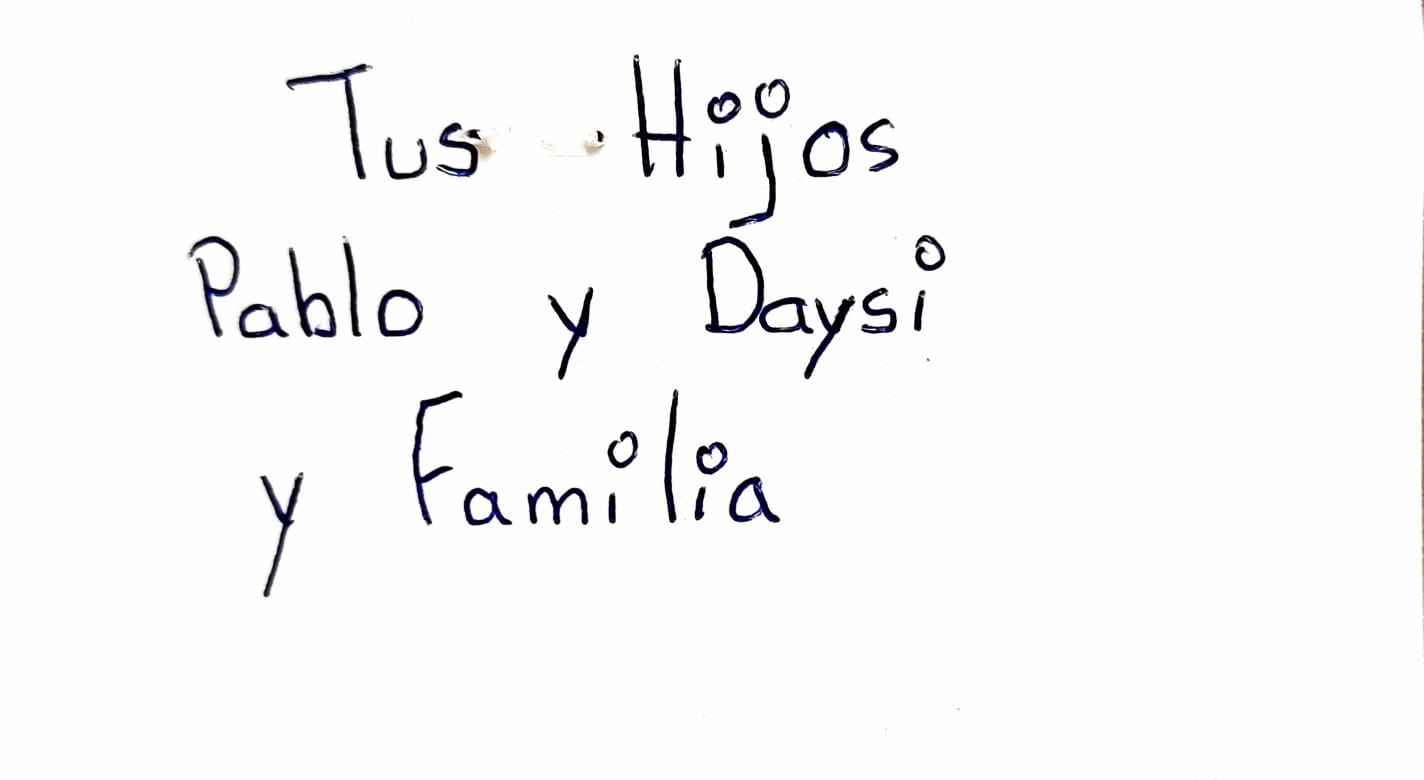 Tus Hijos
Pablo y Daysi
y Familia